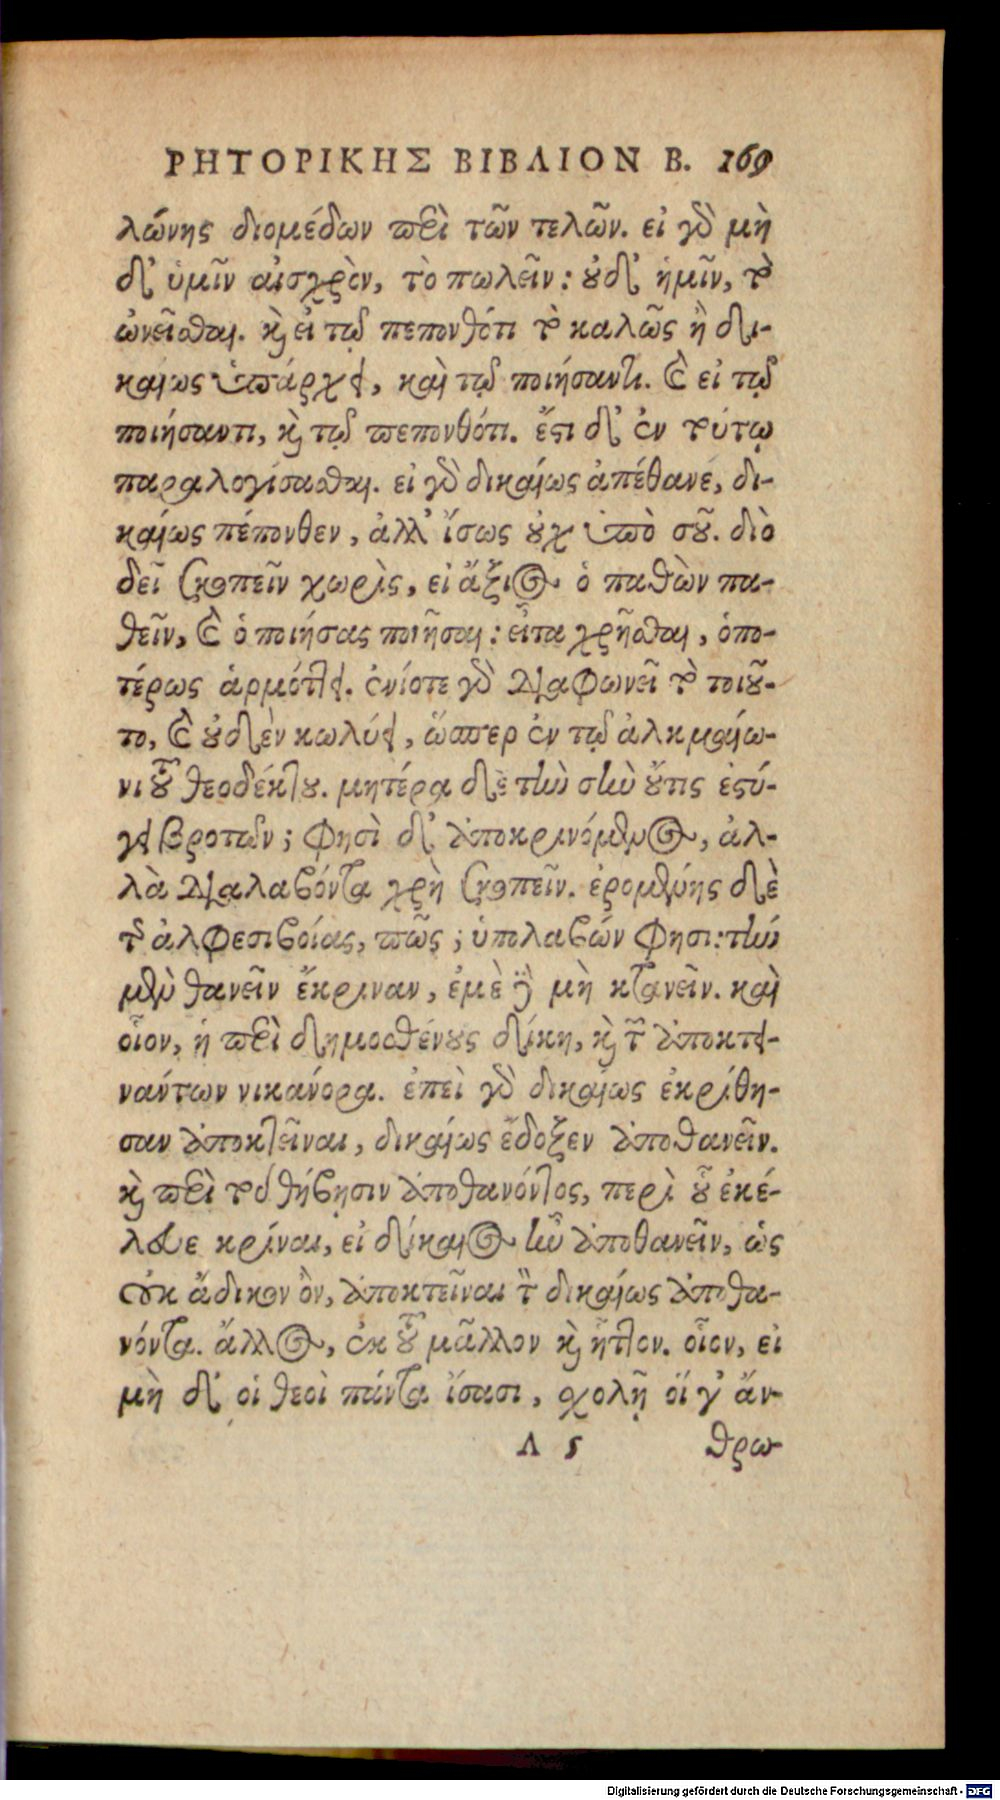 ΡΗΤΟΡΙΚΗΣ ΒΙΒΛΙΟΝ Β. 169
λώνης διομέδων περὶ τῶν τελῶν. εἰ γὰρ μὴ
δ' ὑμῖν αἰσχρὸν, τὸ πωλεῖν: οὐδ' ἡμῖν, τὸ
ὠνεῖσθαι. καὶ εἰ τῷ πεπονθότι τὸ καλῶς ἢ δι-
καίως ὑπάρχει, καὶ τῷ ποιήσαντι. καὶ εἰ τῷ
ποιήσαντι, καὶ τῷ πεπονθότι. ἔστι δ' ἐν τούτῳ
παραλογίσασθαι. εἰ γὰρ δικαίως ἀπέθανέ, δι-
καίως πέπονθεν, ἀλλ' ἴσως οὐχ ὑπὸ σοῦ. διὸ
δεῖ σκοπεῖν χωρὶς, εἰ ἄξιος ὁ παθὼν πα-
θεῖν, καὶ ὁ ποιήσας ποιῆσαι: εἶτα χρῆσθαι, ὁπο-
τέρως ἁρμόττει. ἐνίοτε γὰρ διαφωνεῖ τὸ τοιοῦ-
το, καὶ οὐδὲν κωλύει, ὥσπερ ἐν τῷ ἀλκμαίω-
νι τοῦ θεοδέκτου. μητέρα δὲ τὴν σὴν οὔτις ἐστύ-
γει βροτῶν; φησὶ δ' ἀποκρινόμενος, ἀλ-
λὰ διαλαβόντα χρὴ σκοπεῖν. ἐρομένης δὲ
τῆς ἀλφεσιβοίας, πῶς; ὑπολαβών φησι: τὴν
μὲν θανεῖν ἔκριναν, ἐμὲ δὲ μὴ κτανεῖν. καὶ
οἷον, ἡ περὶ δημοσθένους δίκη, καὶ τῶν ἀποκτει-
ναντων νικάνορα. ἐπεὶ γὰρ δικαίως ἐκρίθη-
σαν ἀποκτεῖναι, δικαίως ἔδοξεν ἀποθανεῖν.
καὶ περὶ τοῦ θήβῃσιν ἀποθανόντος, περὶ οὗ ἐκέ-
λευσε κρίναι, εἰ δίκαιος ἦν ἀποθανεῖν, ὡς
οὐκ ἄδικον ὂν, ἀποκτεῖναι τὸν δικαίως ἀποθα-
νόντα. ἄλλος, ἐκ τοῦ μᾶλλον καὶ ἧττον. οἷον, εἰ
μὴ δ' οἱ θεοὶ πάντα ἴσασι, σχολῇ οἵ γ' ἄν-
Λ 5 θρω-
Digitalisierung gefördert durch die Deutsche Forschungsgemeinschaft - DFG